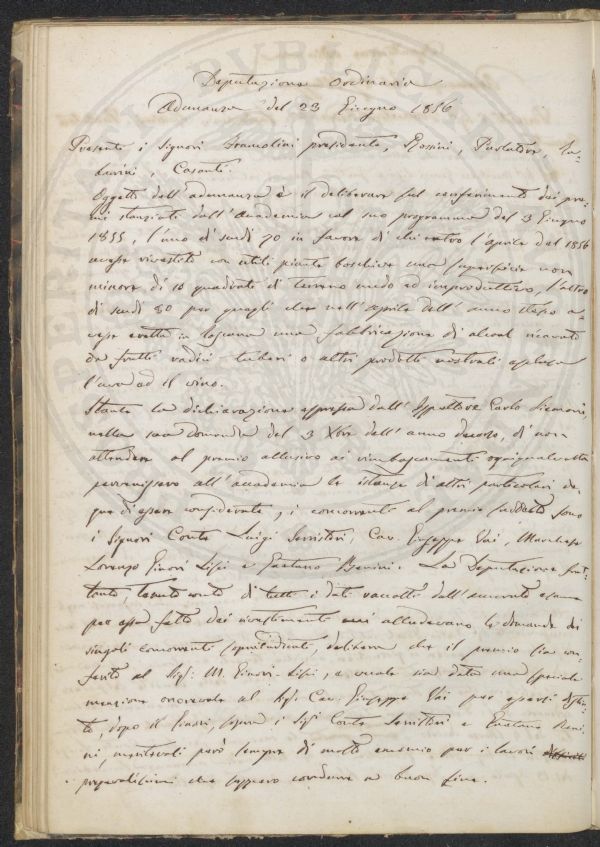 Deputazione ordinaria
Adunanza del 23 Giugno 1856
Presenti i Signori presidente, Rossini, Puslatore, Ta-
, Casanti.
Oggetto dell'adunanza è il deliberare sul conferimento dei pre-
mi stanziati dall'Accademia col suo programma del 3 Giugno
1855, l'uno di scudi 70 in favore di chi entro l'aprile del 1856
avesse rivestito con utili piante boschive una superficie non
minore di 10 quadrati di terreno nudo ed improduttivo, l'altro
di scudi 80 per quegli che nell'aprile dell'anno stesso a-
vesse eretta in Toscana una fabbricazione di alcool ricavato
da frutti radici tuberi o altri prodotti nostrali esclusa
l'uva ed il vino.
Stante la dichiarazione espressa dall'Ispettore Carlo Siemoni,
nella sua domanda del 3 Xbre dell'anno decorso, di non
attendere al premio allusivo ai rimboscamenti ogniqualvolta
pervenissero all'accademia le istanze di altri particolari de-
gne di essere considerate, i concorrenti al premio suddetto sono
i Signori Conte Luigi Serristori, Cav. Giuseppe Vai, Marchese
Lorenzo Ginori Lisci e Gaetano Benini. La Deputazione frat-
tanto, tenuto conto di tutti i dati raccolti dall'accurato esame
per essa fatto dei rivestimenti cui alludevano le domande dei
singoli concorrenti soprindicati, delibera che il premio sia con-
ferito al Sig: M. Ginori-Lisci, e venga sia data una speciale
menzione onorevole al Sig. Cav. Giuseppe Vai per essersi distin-
to, dopo il Ginori, sopra i Sigi Conte Serristori e Gaetano Beni-
ni, meritevoli però sempre di molto encomio per i lavori
che seppero condurre a buon fine.